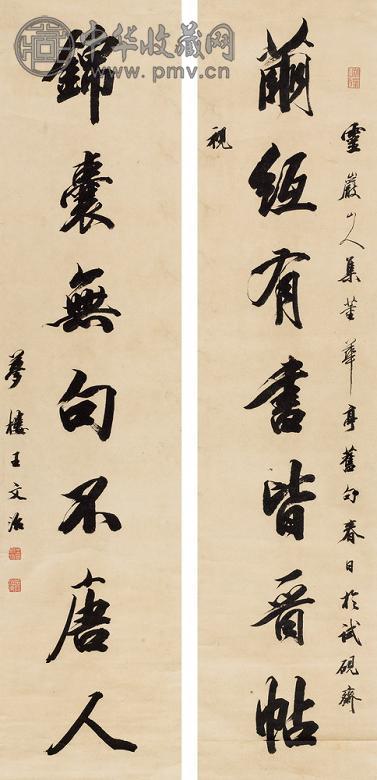 中华收藏网
www.pmv.cn
靈巖山人集董華亭舊句春日於試硯齋
視
繭紙有書皆晉帖
錦囊無句不唐人
夢樓王文治